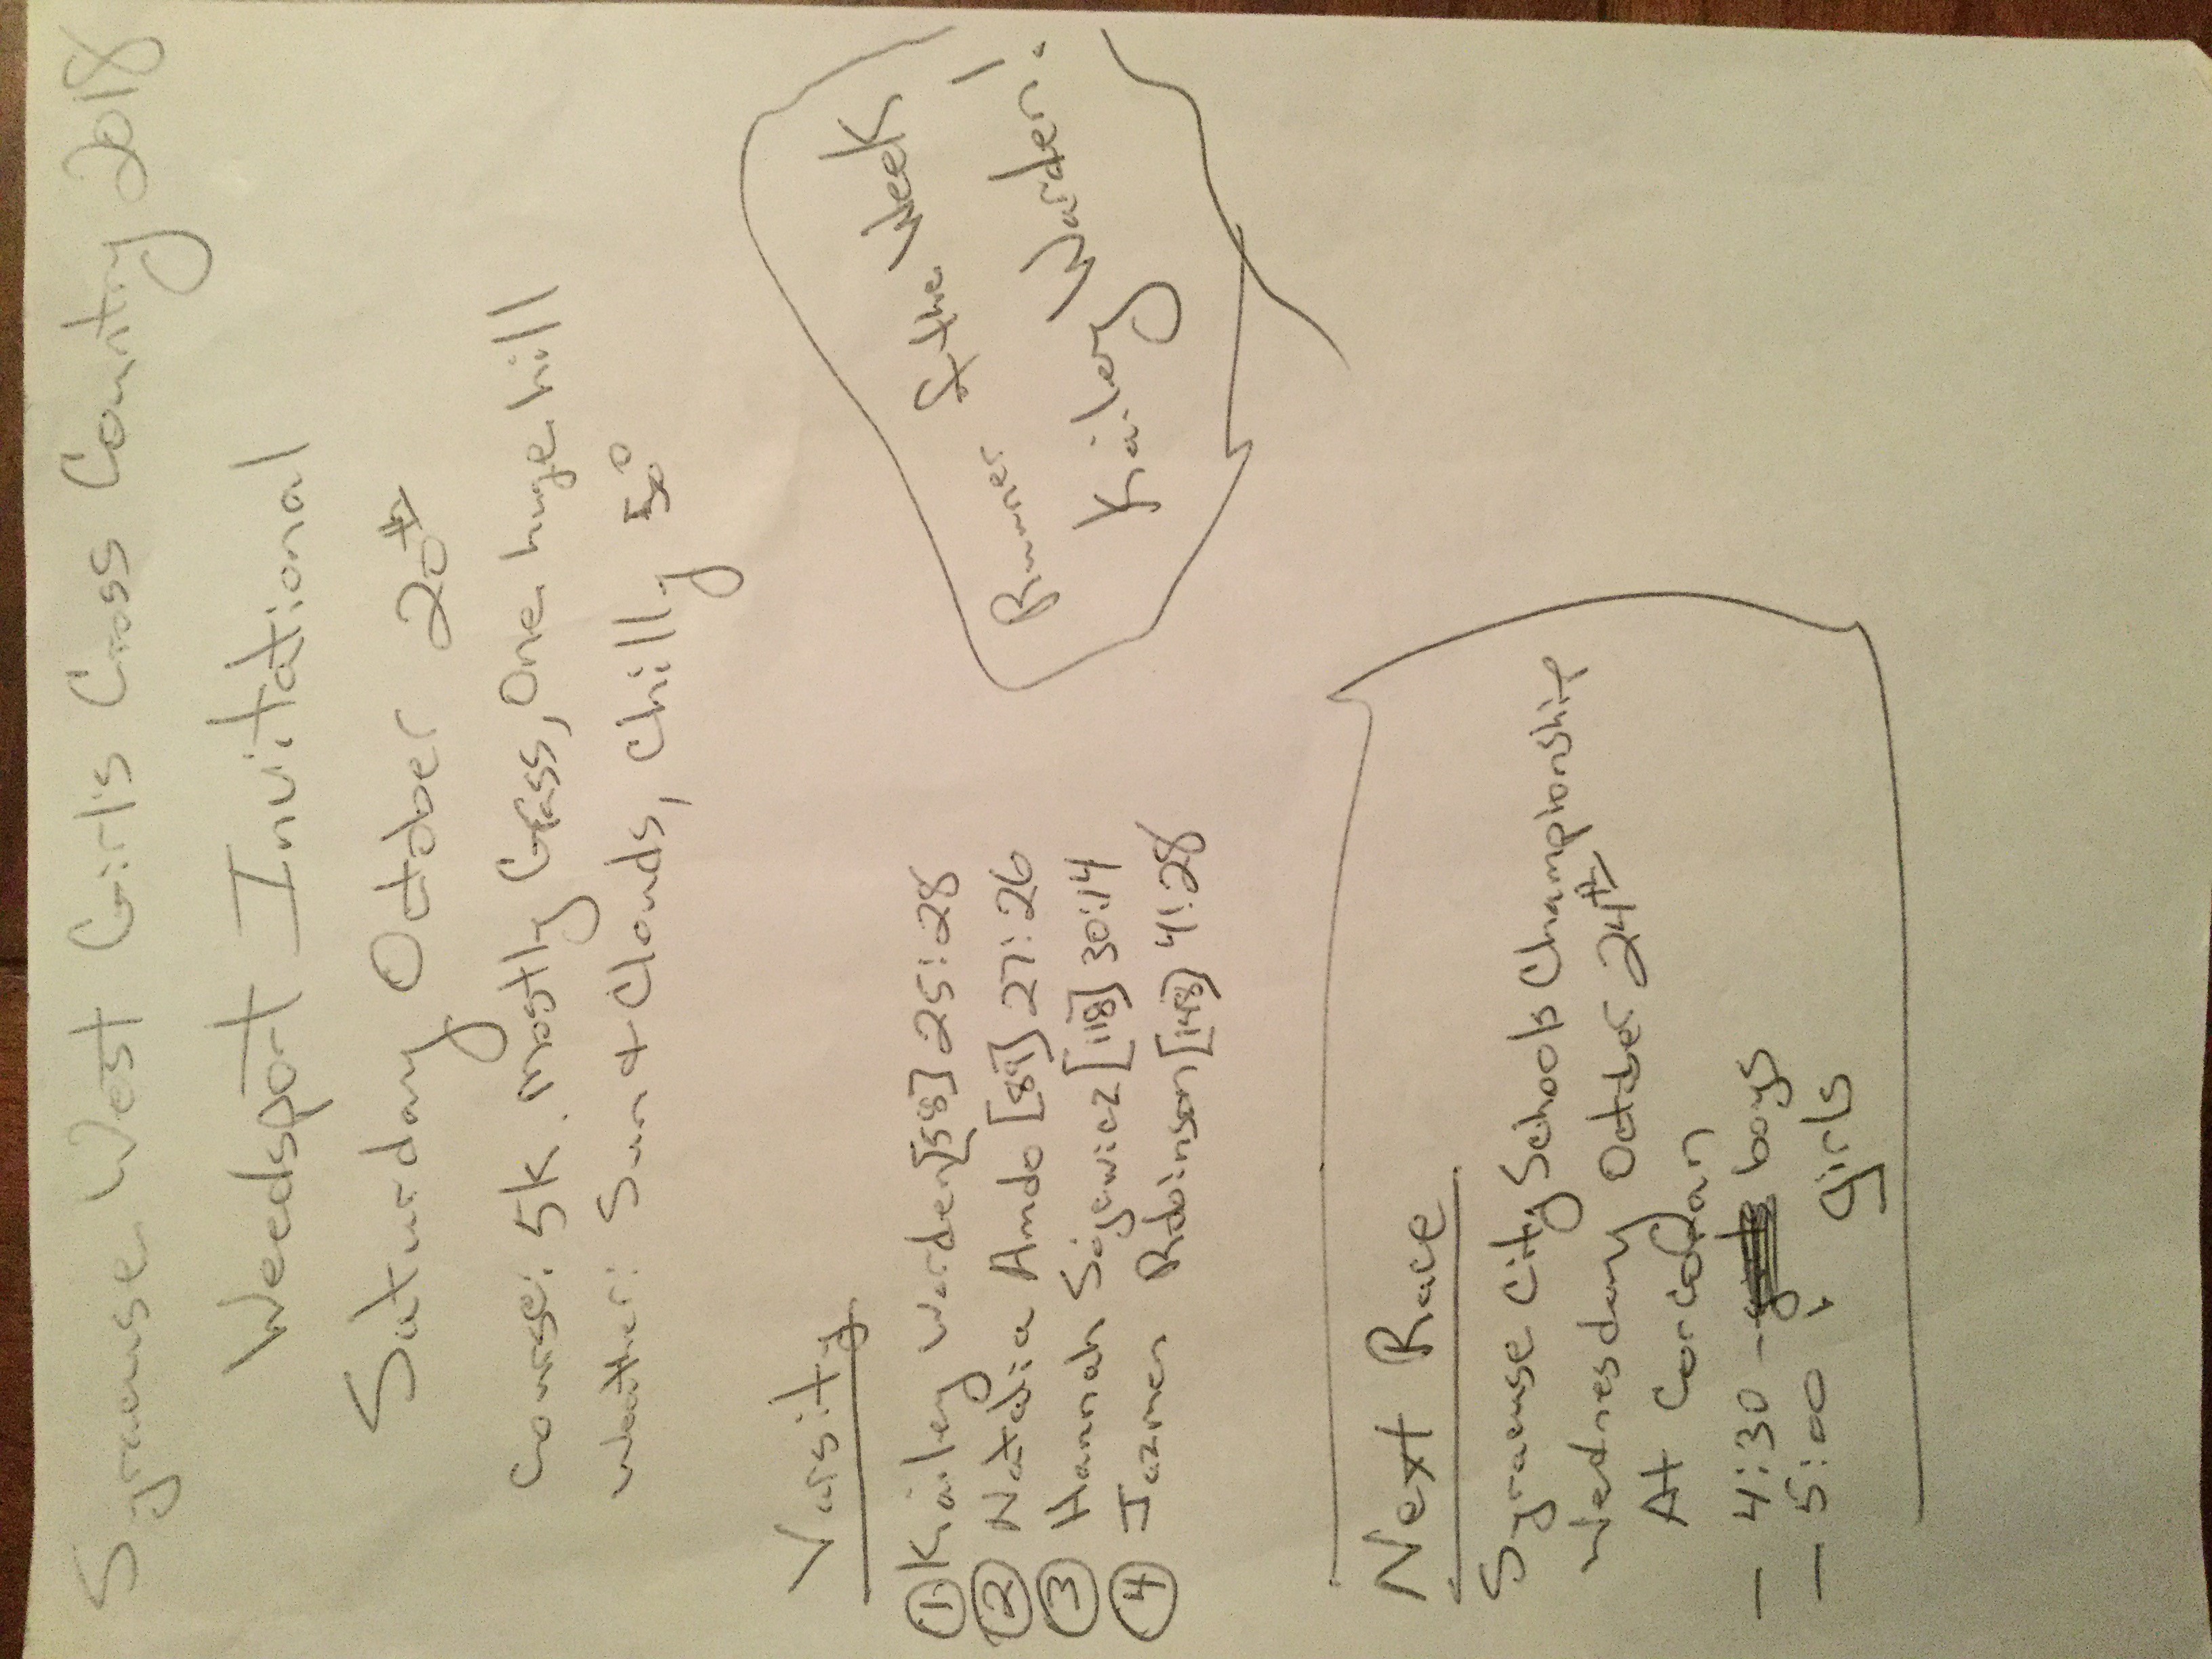 Syracuse West Girl's Cross Country 2018
Weedsport Invitational
Saturday October 20th
Course: 5k. Mostly Grass, One huge hill
Weather: Sun + Clouds, Chilly 50°
Varsity
① Kailey Warden [58] 25:28
② Natalia Ando [89] 27:26
③ Hannah [118] 30:14
④ Jazmen Robinson [148] 41:28
Runner of the Week
Kailey Warden!
Next Race
Syracuse City Schools Championship
Wednesday October 24th
At Corcoran
— 4:30 - boys
— 5:00 girls